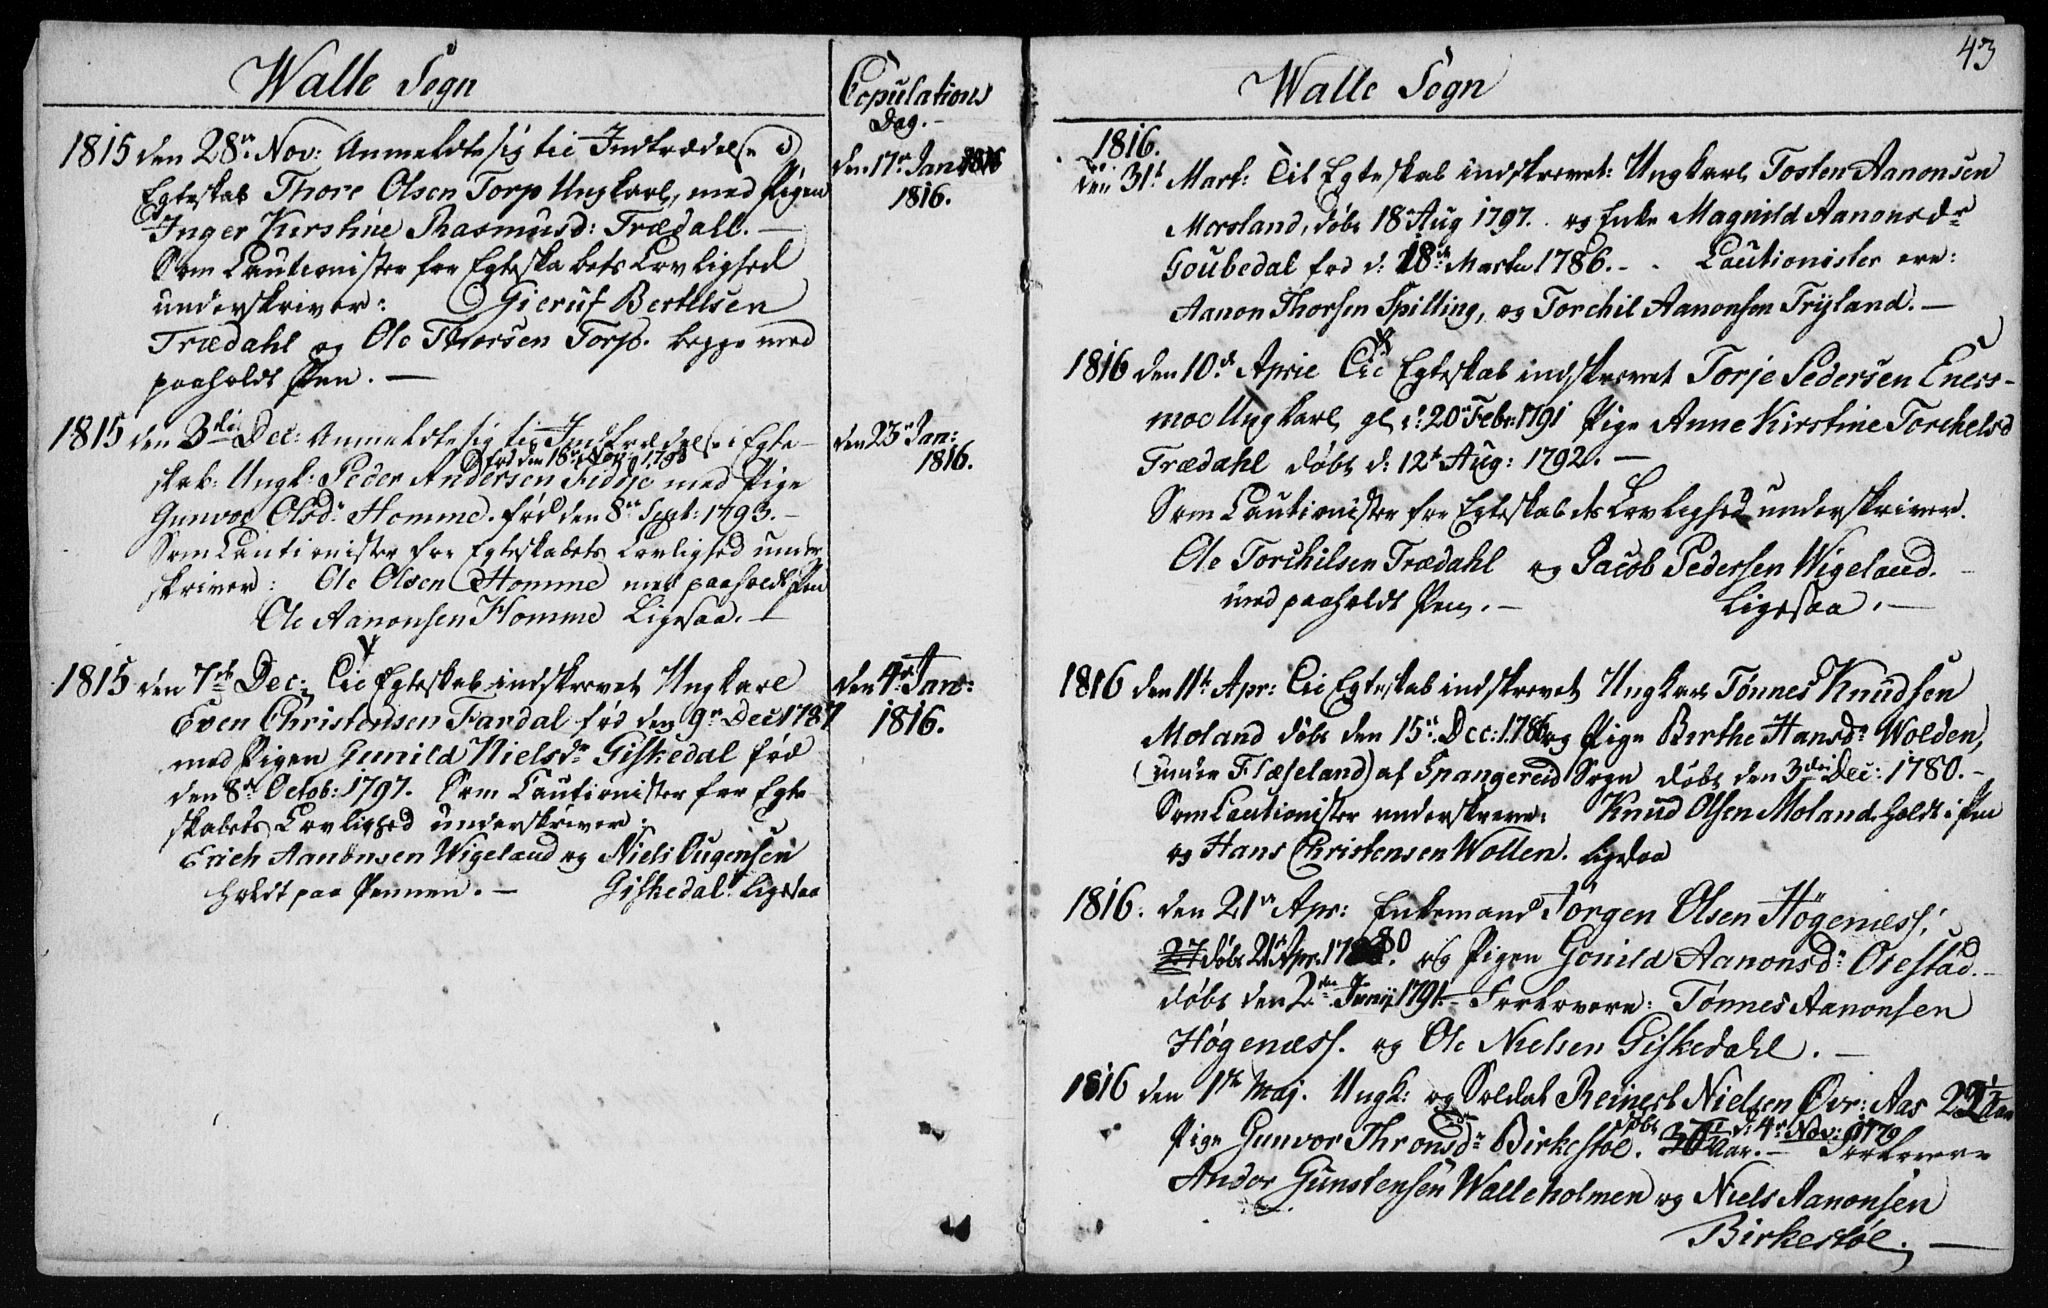 Walle Sogn
Copulations
Dag.
1815 den 28de Nov: Anmeldte sig til Indtrædelse i
Egteskab Thore Olsen Torp Ungkarl, med Pigen
Inger Kirstine Rasmusd: Trædall. —
Som Cautionister for Egteskabets Lovlighed
underskriver: Gieruf Bertelsen
Trædahl og Ole Thorsen Torp. begge med
paaholdt Pen. —
den 17de Jan
1816.
1815 den 3die Dec: Anmeldte sig til Indtrædelse i Egte-
skab: Ungk: Peder Andersen Fidsje med Pige
fød den 18de Nov: 1793
Gunvor Olsdr Homme. fød den 8de Sept: 1793. —
Som Cautionister for Egteskabets Lovlighed under
skriver: Ole Olsen Homme med paaholdt Pen
Ole Aanonsen Homme Ligesaa. —
den 23de Jan:
1816.
1815 den 7de Dec: Til Egteskab indskrevet Ungkarl
Even Christensen Fardal fød den 9de Dec: 1787
med Pigen Gunild Nielsdr Giskedal fød
den 8de Octob: 1797. Som Cautionister for Egte
skabets Lovlighed underskriver:
Erich Aanonsen Wigeland og Niels Ougensen
holdt paa Pennen. — Giskedal. ligesaa
den 4de Jan:
1816.
43
Walle Sogn
1816.
den 31t Mart: Til Egteskab indskrevet: Ungkarl Tosten Aanonsen
Mersland, døbt 18de Aug 1797. og Enke Magnild Aanonsdr
Goubedal fød d: 18de Martii 1786. — Cautionister ere:
Aanon Thorsen Spilling, og Torchil Aanonsen Tryland. —
1816 den 10de April Til Egteskab indskrevet Torje Pedersen Eness-
moe Ungkarl gl d: 20de Febr: 1791 Pige Anne Kirstine Torchelsd
Trædahl døbt d: 12t Aug: 1792. —
Som Cautionister for Egteskabets Lovlighed underskriver.
Ole Torchilsen Trædahl og Jacob Pedersen Wigeland.
med paaholdt Pen. — Ligesaa. —
1816 den 11t Apr: Til Egteskab indskrevet Ungkarl Tønnes Knudsen
Moland døbt den 15de Dec: 1786 og Pige Berthe Hansdr Wolden,
(under Flæseland) af Spangereid Sogn døbt den 3die Dec: 1780. —
Som Cautionister underskrive: Knud Olsen Moland holdt i Pen
og Hans Christensen Wollen. ligesaa
1816. den 21de Apr: Enkemand Jørgen Olsen Høgenæss.
døbt 21de Apr. 1780. og Pigen Gonild Aanonsdr Orestad. —
døbt den 2den Junij 1791. — Forlovere: Tønnes Aanonsen
Høgenæss. og Ole Nielsen Giskedahl. —
1816 den 1ste Maj. Ungk: og Soldat Reinert Nielsen Øvr: Aas 22 Aar
Pige Gunvor Thronsdr Birkestøl. 37 Aar. — Forlovere
døbt d: 4de Nov: 1779
Andor Gunstensen Walleholmen og Niels Aanonsen
Birkestøl. —